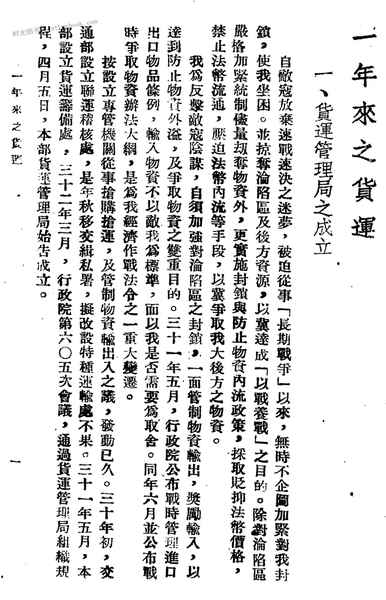 一年來之貨運
一、貨運管理局之成立
自敵寇放棄速戰速決之迷夢，被迫從事「長期戰爭」以來，無時不企圖加緊對我封
鎖，使我坐困。並掠奪淪陷區及後方資源，以冀達成「以戰養戰」之目的。除對淪陷區
嚴格加緊統制儘量刼奪物資外，更實施封鎖與防止物資內流政策，採取貶抑法幣價格，
禁止法幣流通，壓迫法幣內流等手段，以冀爭取我大後方之物資。
我為反擊敵寇陰謀，自須加強對淪陷區之封鎖，一面管制物資輸出，獎勵輸入，以
達到防止物資外溢，及爭取物資之雙重目的。三十一年五月，行政院公布戰時管理進口
出口物品條例，輸入物資不以敵我為標準，而以我是否需要為取舍。同年六月並公布戰
時爭取物資辦法大綱，是為我經濟作戰法令之一重大變遷。
按設立專管機關從事搶購搶運，及管制物資輸出入之議，發動已久。三十年初，交
通部設立聯運稽核處，是年秋移交緝私署，擬改設特種運輸處不果。三十一年五月，本
部設立貨運籌備處，三十二年三月，行政院第六〇五次會議，通過貨運管理局組織規
程，四月五日，本部貨運管理局始告成立。
一年來之貨運
一